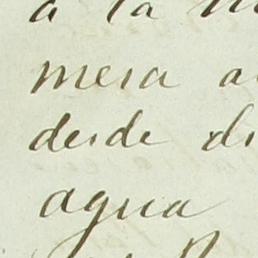 a la
mesa a
desde di
agua